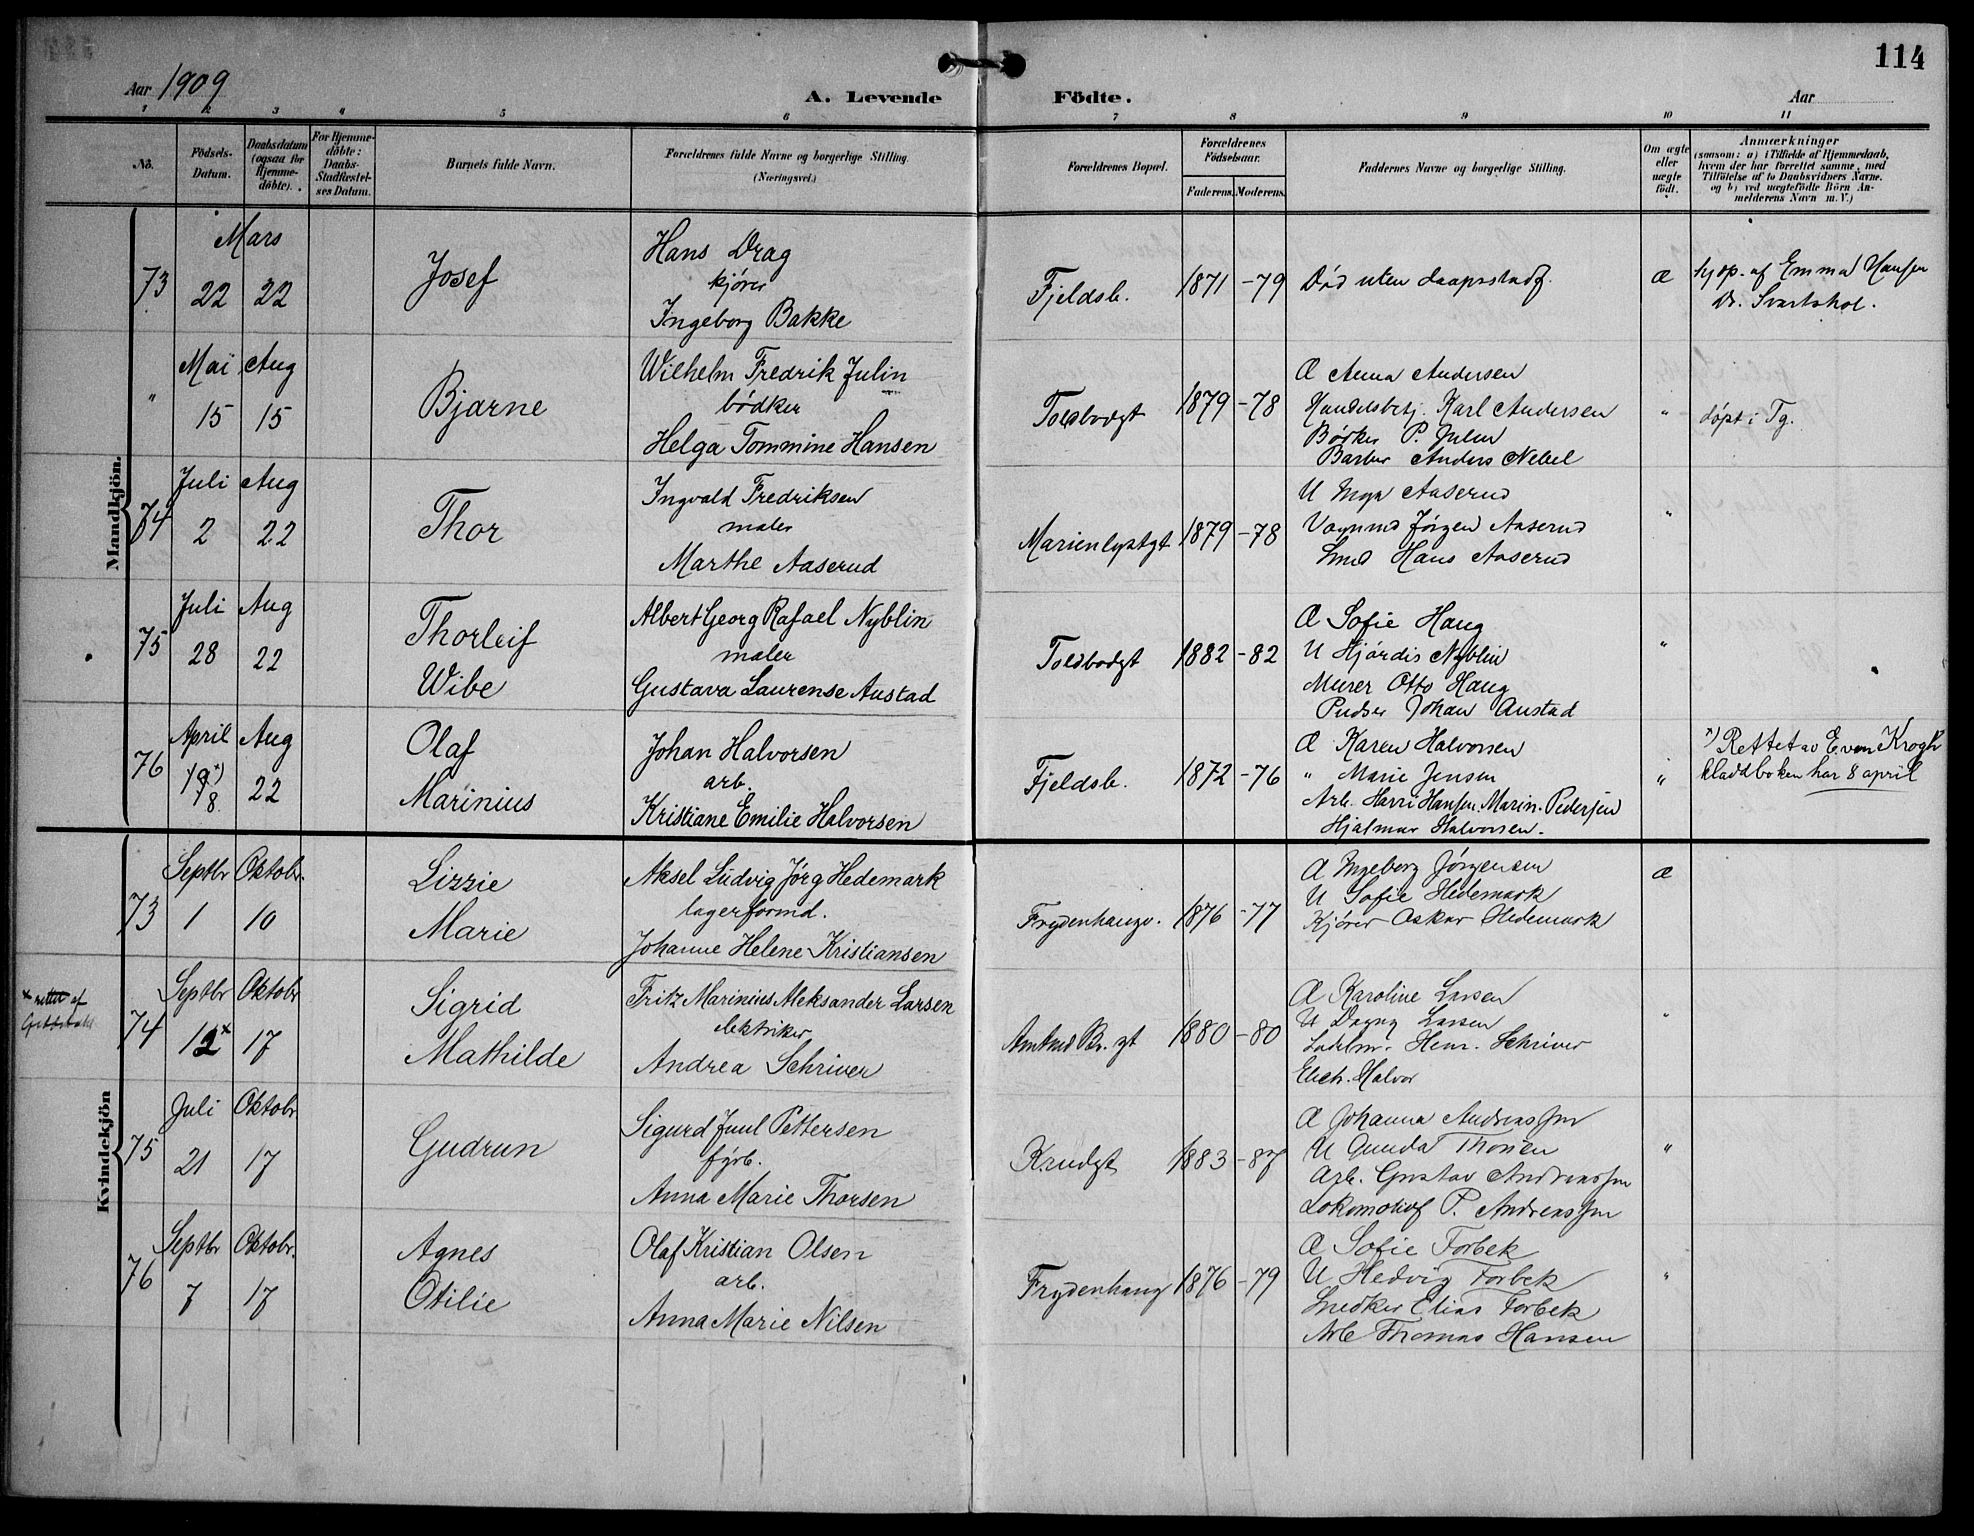 114
Aar 1909
A. Levende Födte.
Aar
1 2 3 4 5 6 7 8 9 10 11
No.
Födsels-Datum.
Daabsdatum (ogsaa for Hjemme-döbte).
For Hjemme-döbte: Daabs-Stadfæstel-ses Datum.
Barnets fulde Navn.
Forældrenes fulde Navne og borgerlige Stilling.
(Næringsvei.)
Forældrenes Bopæl.
Forældrenes Födselsaar.
Faderens. Moderens.
Faddernes Navne og borgerlige Stilling.
Om ægte eller uægte födt.
Anmærkninger
(saasom: a) i Tilfælde af Hjemmedaab,
hvem der har forrettet samme, med
Tilföielse af to Daabsvidners Navne.
og b) ved uægtefödte Börn An-
melderens Navn m. V.)
Mandkjön.
73 Mars 22 22
Josef
Hans Drag
kjører
Ingeborg Bakke
Fjeldsb. 1871 -79
Død uten daapsstadf.
æ
hjdp. af Emma Hansen
Dr. Svartshol.
" Mai 15 Aug 15
Bjarne
Wilhelm Fredrik Julin
bødker
Helga Tommine Hansen
Toldbodgt 1879 -78
Æ Anna Andersen
Handelsbetj. Karl Andersen
Bødker P. Julin
Barber Anders Nebel
"
døpt i Tg.
74 Juli 2 Aug 22
Thor
Ingvald Fredriksen
maler
Marthe Aaserud
Marienlystgt 1879 -78
U Inga Aaserud
Vognmd Jörgen Aaserud
Smed Hans Aaserud
"
75 Juli 28 Aug 22
Thorleif
Wibe
Albert Georg Rafael Nyblin
maler
Gustava Laurense Austad
Toldbodgt 1882 -82
Æ Sofie Haug
U Hjördis Nyblin
Murer Otto Haug
Pudser Johan Austad
"
76 April 19 x) 8. Aug 22
Olaf
Marinius
Johan Halvorsen
arb.
Kristiane Emilie Halvorsen
Fjeldsb. 1872 -76
Æ Karen Halvorsen
" Marie Jensen
Arb. Harri Hansen. Marin. Pedersen
Hjalmar Halvorsen.
"
x) Rettet av E. von Krogh
kladdboken har 8 april
Kvindekjön
73 Septbr 1 Oktobr. 10
Lizzie
Marie
Aksel Ludvig Jörg Hedemark
lagerformd.
Johanne Helene Kristiansen
Frydenhaugv. 1876 -77
Æ Ingeborg Jørgensen
U Sofie Hedemark
Kjører Oskar Hedemark
æ
x rettet af
74 Septbr 12 x Oktobr 17
Sigrid
Mathilde
Fritz Marinius Aleksander Larsen
elektriker
Andrea Schriver
Amtmd Bl. gt 1880 -80
Æ Karoline Larsen
U Dagny Larsen
Henr. Schriver
Elektr. Halvor
"
75 Juli 21 Oktobr 17
Gudrun
Sigurd Juul Pettersen
fyrb.
Anna Marie Thorsen
Krudgt 1883 -87
Æ Johanna Andreassen
U Gunda Thorsen
Arb. Gustav Andreassen
Lokomotivf P. Andreassen
"
76 Septbr 7 Oktobr. 17
Agnes
Otilie
Olaf Kristian Olsen
arb.
Anna Marie Nilsen
Frydenhaug 1876 -79
Æ Sofie Forbek
U Hedvig Forbek
Snedker Elias Forbek
Arb Thomas Hansen
"